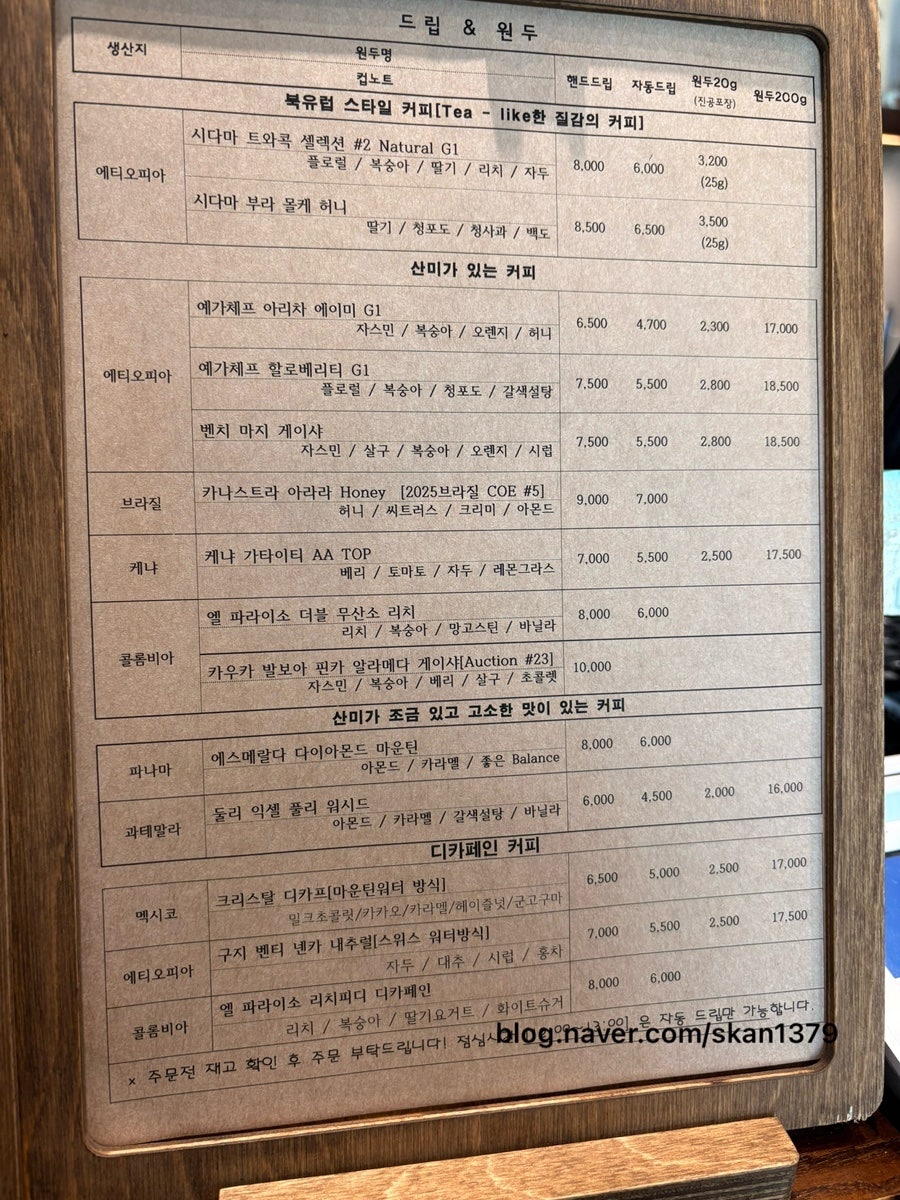 드립 & 원두
생산지 원두명 핸드드립 자동드립 원두20g (진공포장) 원두200g
컵노트
북유럽 스타일 커피[Tea - like한 질감의 커피]
에티오피아 시다마 트와콕 셀렉션 #2 Natural G1 8,000 6,000 3,200 (25g)
플로럴 / 복숭아 / 딸기 / 리치 / 자두
시다마 부라 몰케 허니 8,500 6,500 3,500 (25g)
딸기 / 청포도 / 청사과 / 백도
산미가 있는 커피
에티오피아 예가체프 아리차 에이미 G1 6,500 4,700 2,300 17,000
자스민 / 복숭아 / 오렌지 / 허니
예가체프 할로베리티 G1 7,500 5,500 2,800 18,500
플로럴 / 복숭아 / 청포도 / 갈색설탕
벤치 마지 게이샤 7,500 5,500 2,800 18,500
자스민 / 살구 / 복숭아 / 오렌지 / 시럽
브라질 카나스트라 아라라 Honey [2025브라질 COE #5] 9,000 7,000
허니 / 씨트러스 / 크리미 / 아몬드
케냐 케냐 가타이티 AA TOP 7,000 5,500 2,500 17,500
베리 / 토마토 / 자두 / 레몬그라스
콜롬비아 엘 파라이소 더블 무산소 리치 8,000 6,000
리치 / 복숭아 / 망고스틴 / 바닐라
카우카 발보아 핀카 알라메다 게이샤[Auction #23] 10,000
자스민 / 복숭아 / 베리 / 살구 / 초콜렛
산미가 조금 있고 고소한 맛이 있는 커피
파나마 에스메랄다 다이아몬드 마운틴 8,000 6,000
아몬드 / 카라멜 / 좋은 Balance
과테말라 둘리 익셀 풀리 워시드 6,000 4,500 2,000 16,000
아몬드 / 카라멜 / 갈색설탕 / 바닐라
디카페인 커피
멕시코 크리스탈 디카프[마운틴워터 방식] 6,500 5,000 2,500 17,000
밀크초콜릿/카카오/카라멜/헤이즐넛/군고구마
에티오피아 구지 벤티 넨카 내추럴[스위스 워터방식] 7,000 5,500 2,500 17,500
자두 / 대추 / 시럽 / 홍차
콜롬비아 엘 파라이소 리치피디 디카페인 8,000 6,000
리치 / 복숭아 / 딸기요거트 / 화이트슈거
× 주문전 재고 확인 후 주문 부탁드립니다! 은 자동 드립만 가능합니다.
blog.naver.com/skan1379